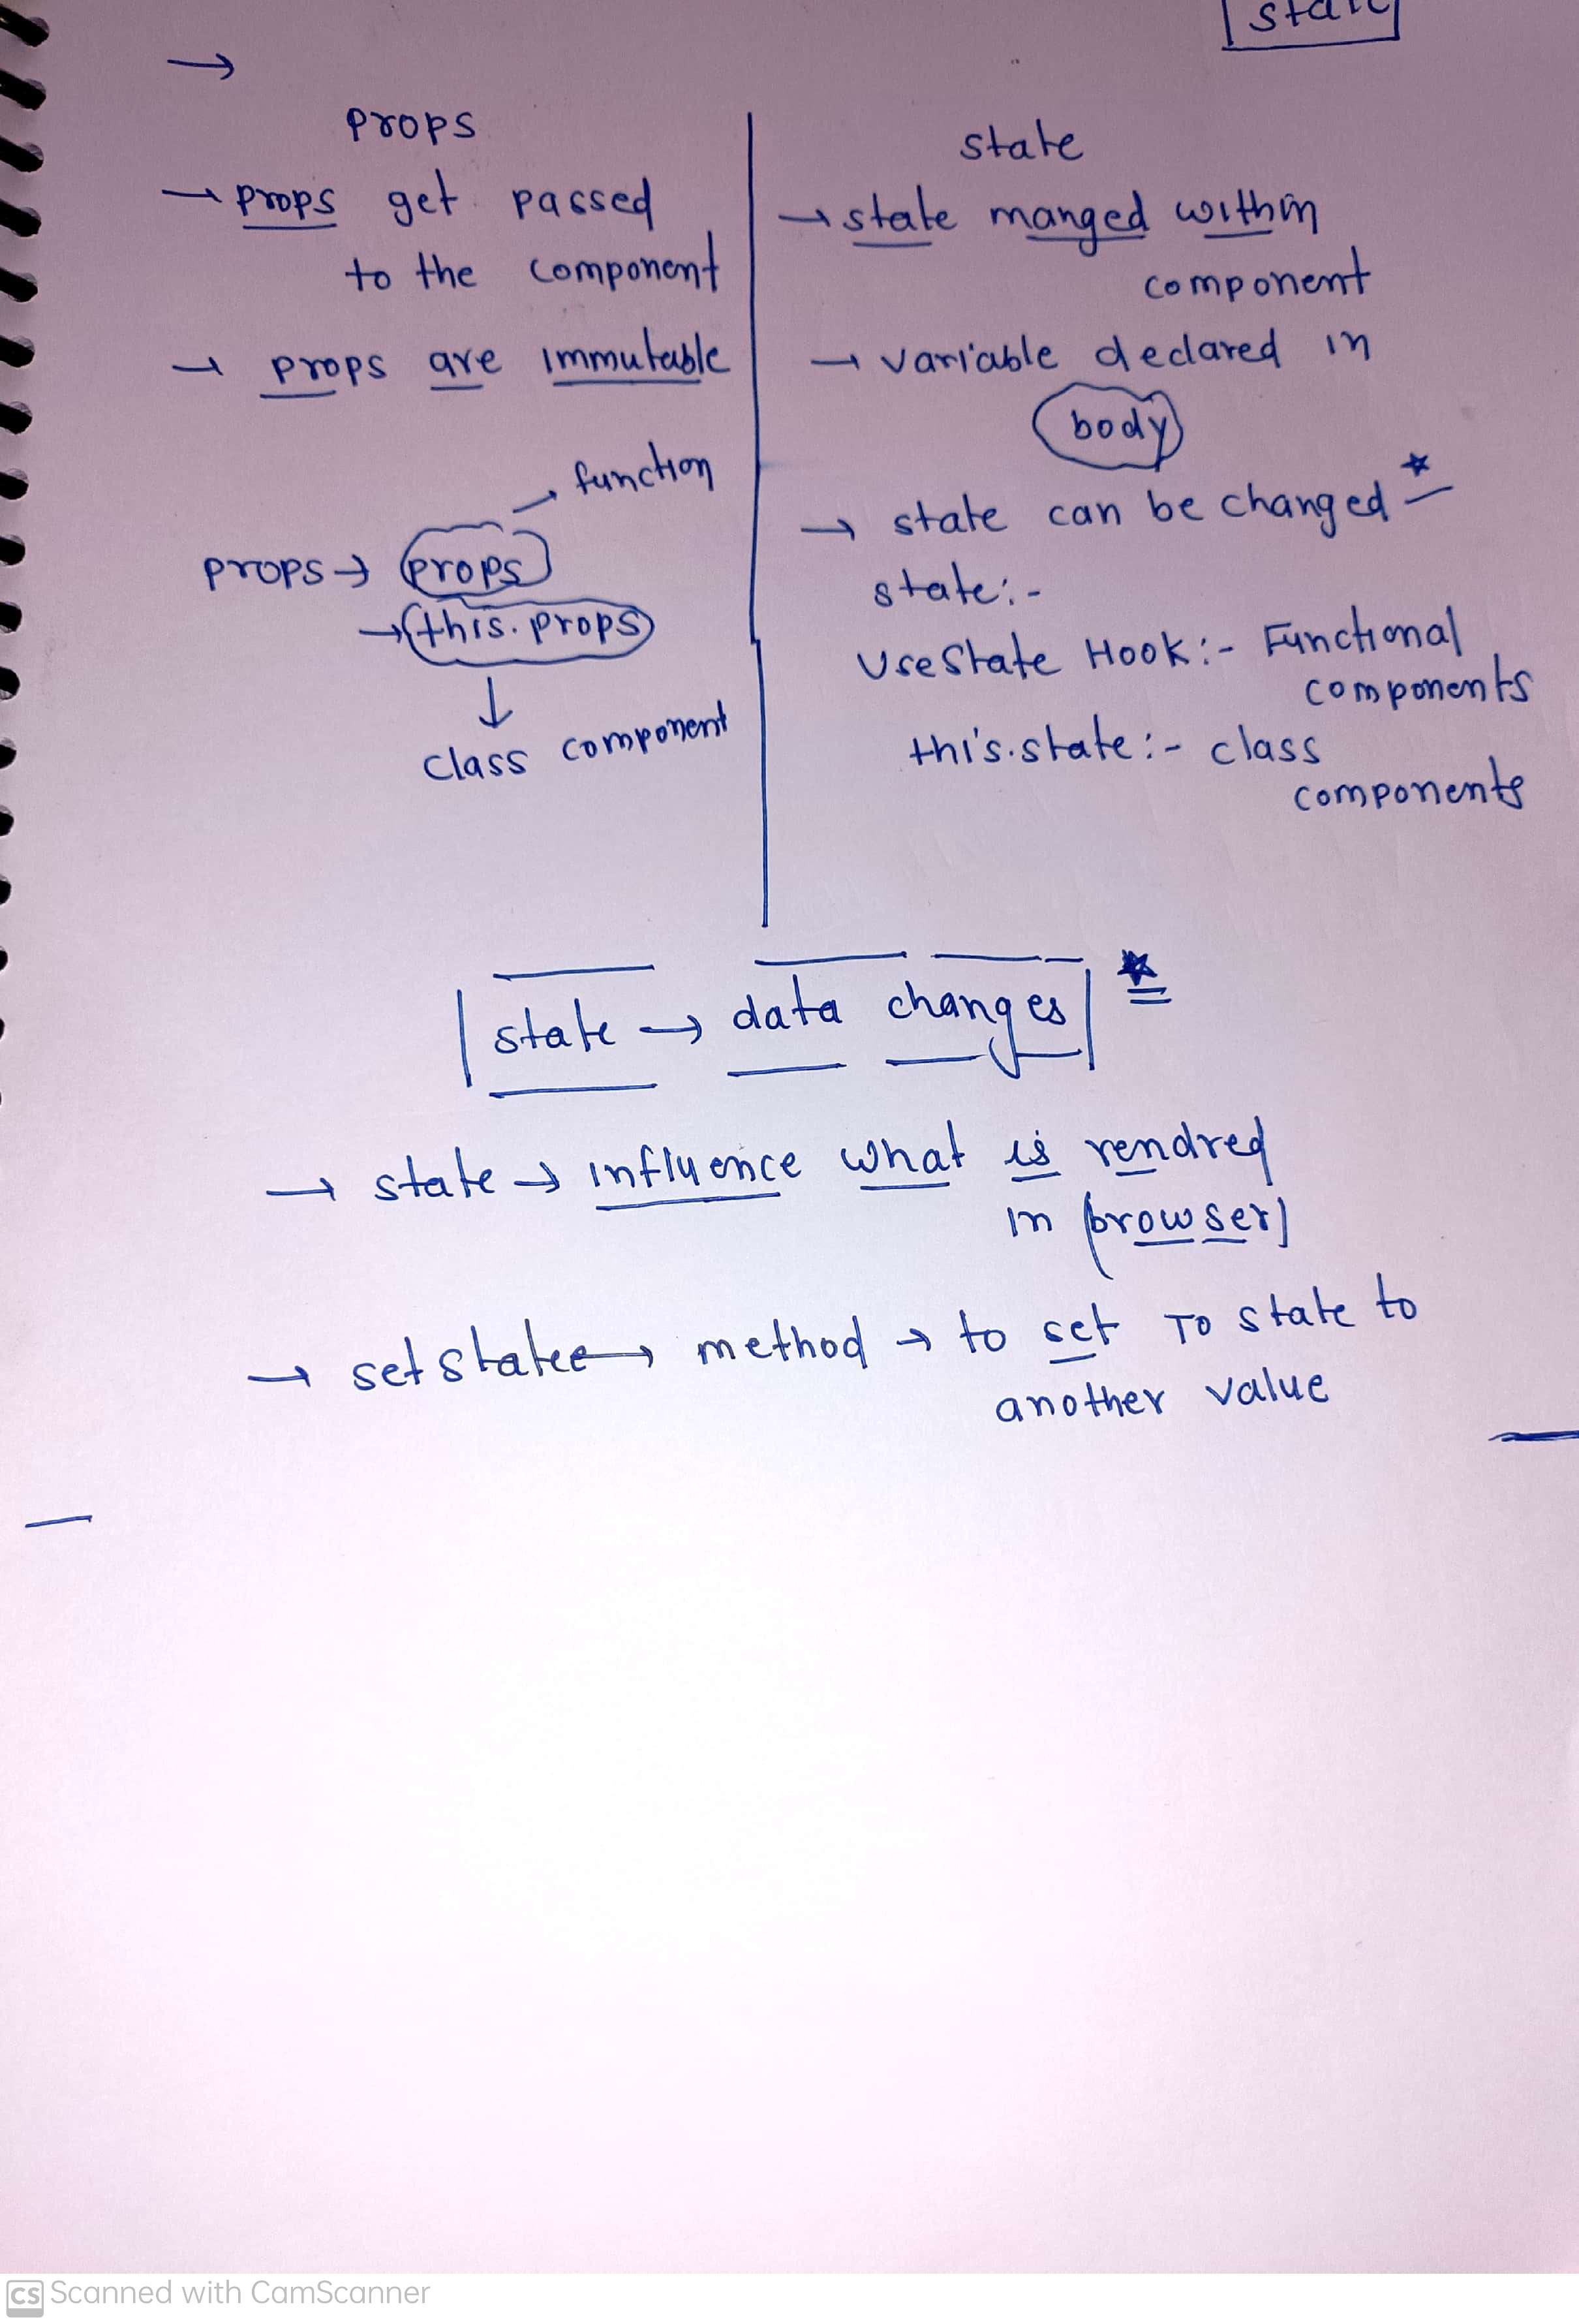 state
→
props
→ props get passed
to the component
→ props are immutable
function
props → props
→ this.props
↓
class component
state
→ state manged within
component
→ variable declared in
body
→ state can be changed
state:-
UseState Hook:- Functional
components
this.state:- class
components
state → data changes
→ state → influence what is rendred
in browser
→ setstate → method → to set To state to
another value
CS Scanned with CamScanner